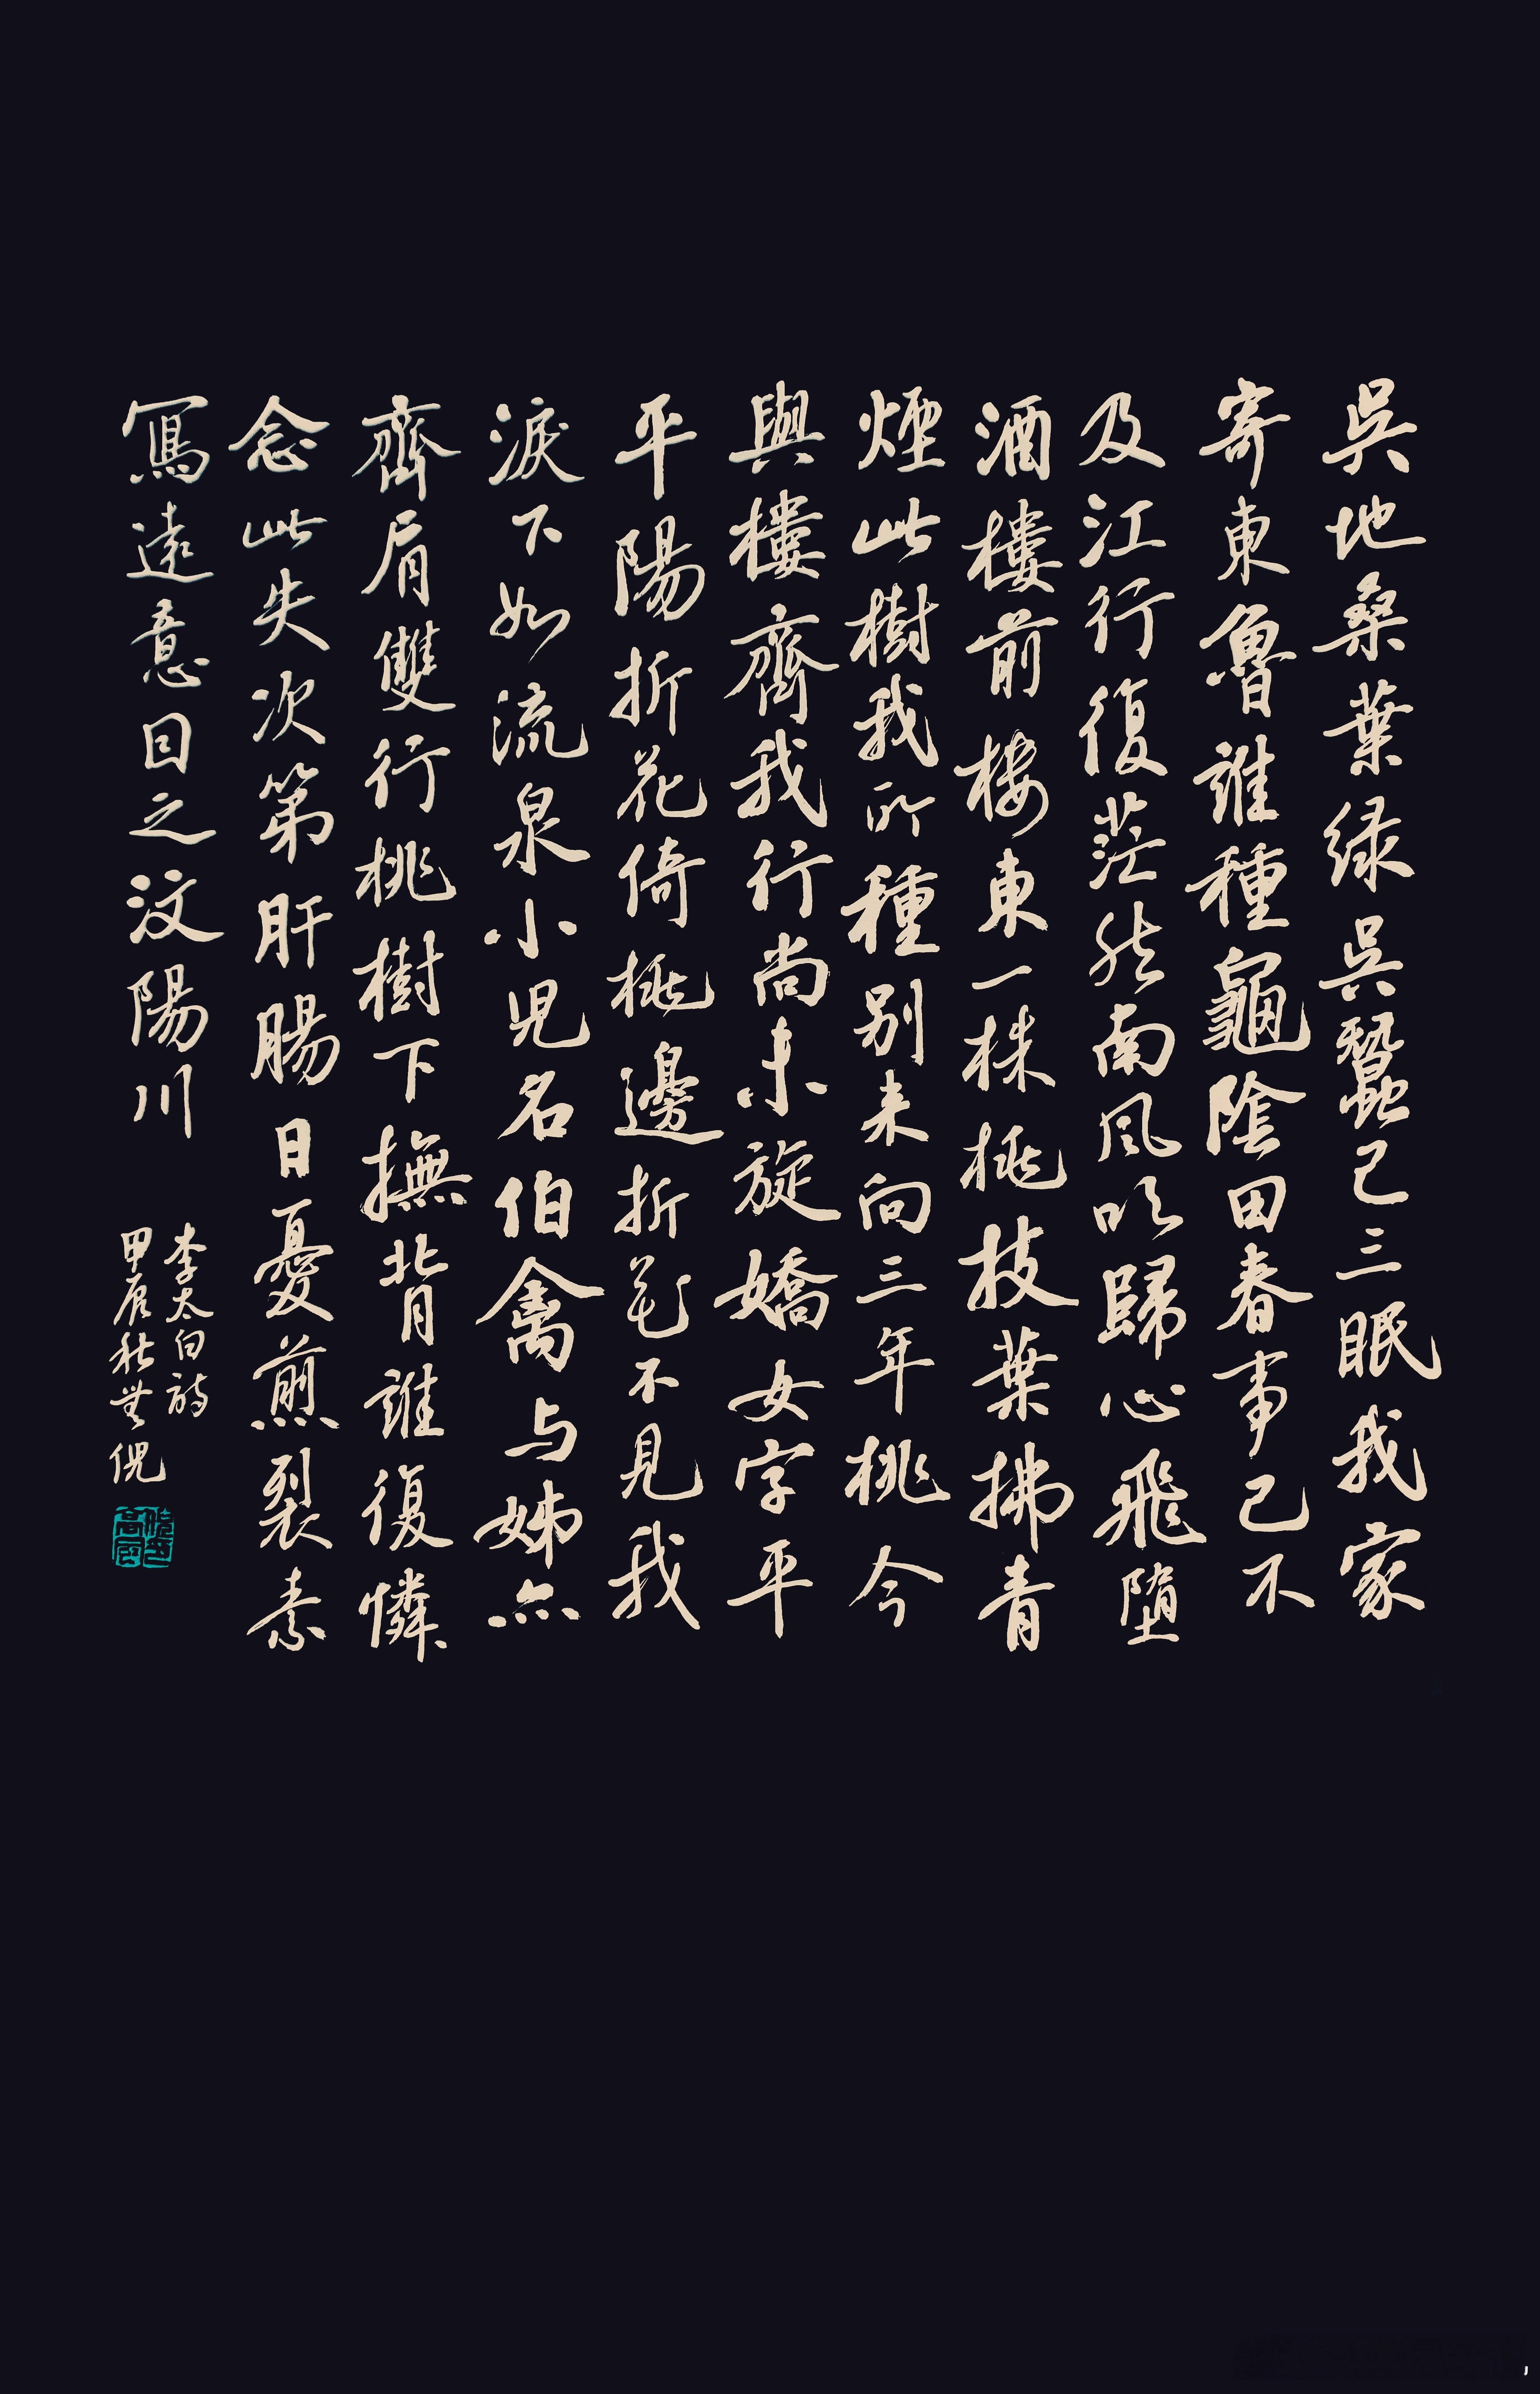 吳地桑葉綠吳蠶已三眠我家
寄東魯誰種龜陰田春事已不
及江行復茫然南風吹歸心飛墮
酒樓前樓東一株桃枝葉拂青
煙此樹我所種別来向三年桃今
與樓齊我行尚未旋嬌女字平
平陽折花倚桃邊折花不見我
淚下如流泉小児名伯禽与姊亦
齊肩雙行桃樹下撫背誰復憐
念此失次第肝腸日憂煎裂素
寫遠意因之汶陽川
李太白詩
甲辰秋無倪